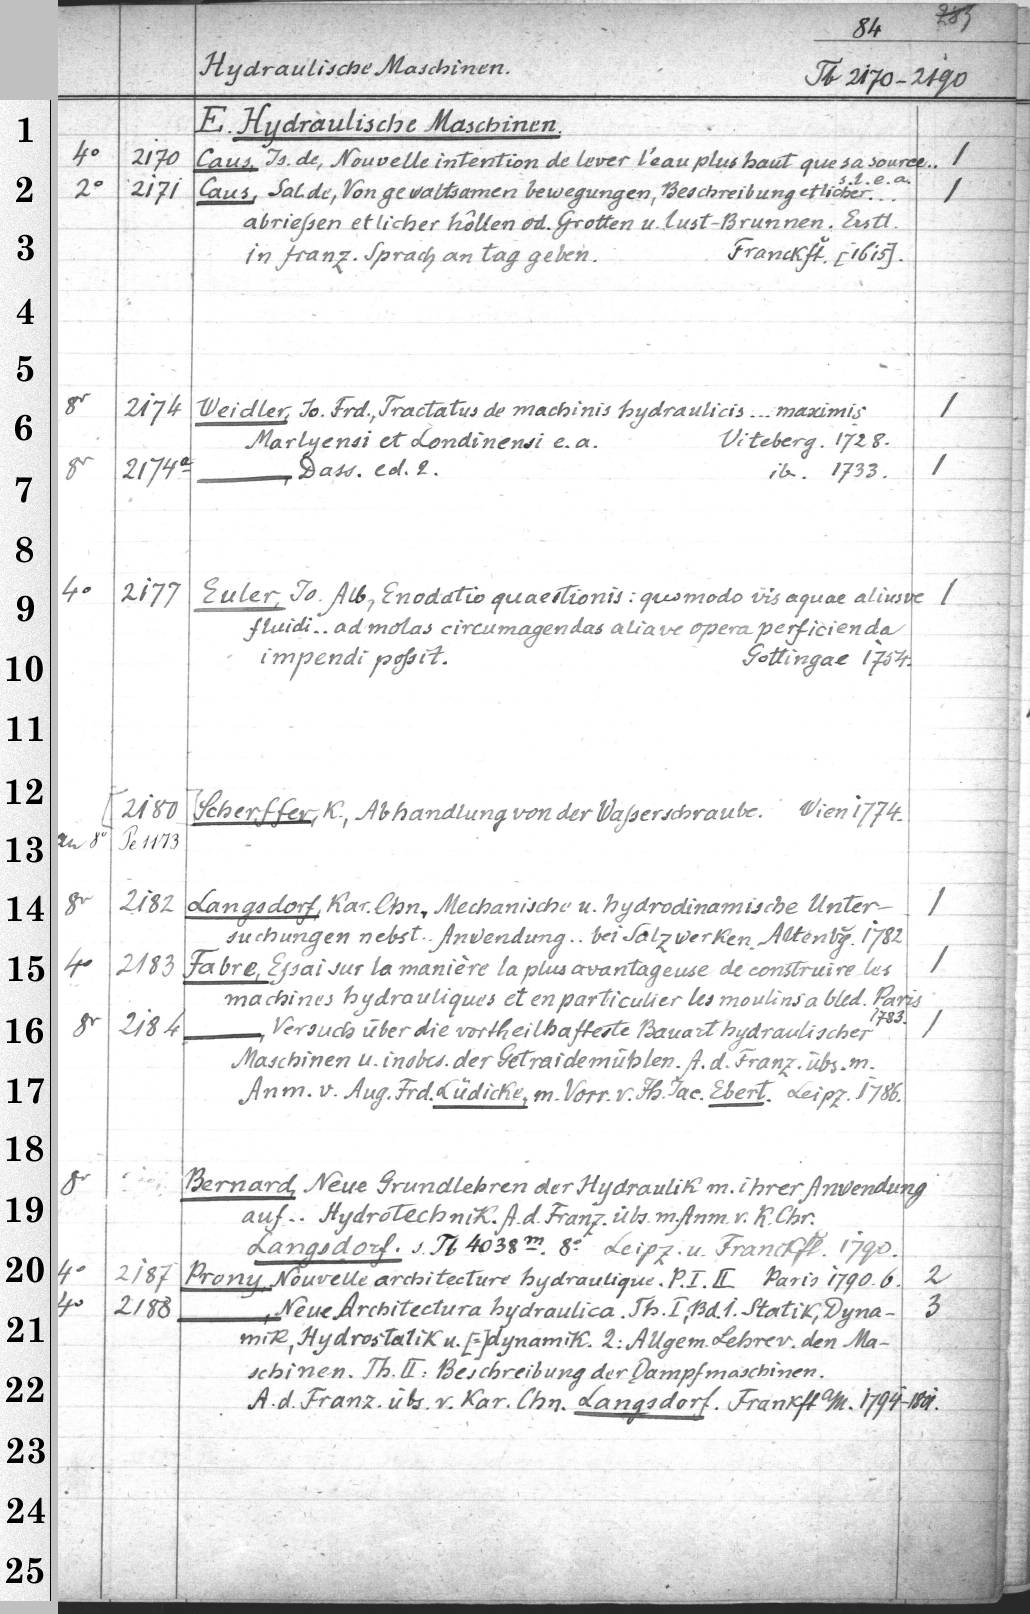 84 283
Hydraulische Maschinen. Tb 2170-2190
E. Hydraulische Maschinen.
4° 2170 Caus, Is. de, Nouvelle intention de lever l'eau plus haut que sa source.. 1
s.l.e.a.
2° 2171 Caus, Sal. de, Von gewaltsamen bewegungen, Beschreibung etlicher... 1
abrießen etlicher höllen od. Grotten u. lust-Brunnen. Erstl.
in franz. Sprach an tag geben. Franckft. [1615].
8r 2174 Weidler, Jo. Frd., Tractatus de machinis hydraulicis ... maximis 1
Marlyensi et Londinensi e.a. Viteberg. 1728.
8r 2174a ———, Dass. ed. 2. ib. 1733. 1
4° 2177 Euler, Jo. Alb., Enodatio quaestionis: quomodo vis aquae aliusve 1
fluidi.. ad molas circumagendas aliave opera perficienda
impendi poßit. Gottingae 1754.
[2180] Scherffer, K., Abhandlung von der Waßerschraube. Wien 1774.
an 8° Pe 1173
8r 2182 Langsdorf, Kar. Chn., Mechanische u. hydrodinamische Unter- 1
suchungen nebst.. Anwendung.. bei Salzwerken. Altenbg. 1782
4° 2183 Fabre, Eßai sur la manière la plus avantageuse de construire les 1
machines hydrauliques et en particulier les moulins a bled. Paris
1783.
8r 2184 ———, Versuch über die vortheilhafteste Bauart hydraulischer 1
Maschinen u. insbes. der Getraidemühlen. A. d. Franz. übs. m.
Anm. v. Aug. Frd. Lüdicke, m. Vorr. v. Jh. Jac. Ebert. Leipz. 1786.
8r Bernard, Neue Grundlehren der Hydraulik m. ihrer Anwendung
auf.. Hydrotechnik. A. d. Franz. übs. m. Anm. v. K. Chr.
Langsdorf. s. Tb 4038m. 8° Leipz. u. Franckft. 1790.
4° 2187 Prony, Nouvelle architecture hydraulique. P. I. II Paris 1790. 6. 2
4° 2188 ———, Neue Architectura hydraulica. Th. I, Bd. 1. Statik, Dyna- 3
mik, Hydrostatik u. [=]dynamik. 2: Allgem. Lehre v. den Ma-
schinen. Th. II: Beschreibung der Dampfmaschinen.
A. d. Franz. übs. v. Kar. Chn. Langsdorf. Frankft a/M. 1794-1801.
1
2
3
4
5
6
7
8
9
10
11
12
13
14
15
16
17
18
19
20
21
22
23
24
25